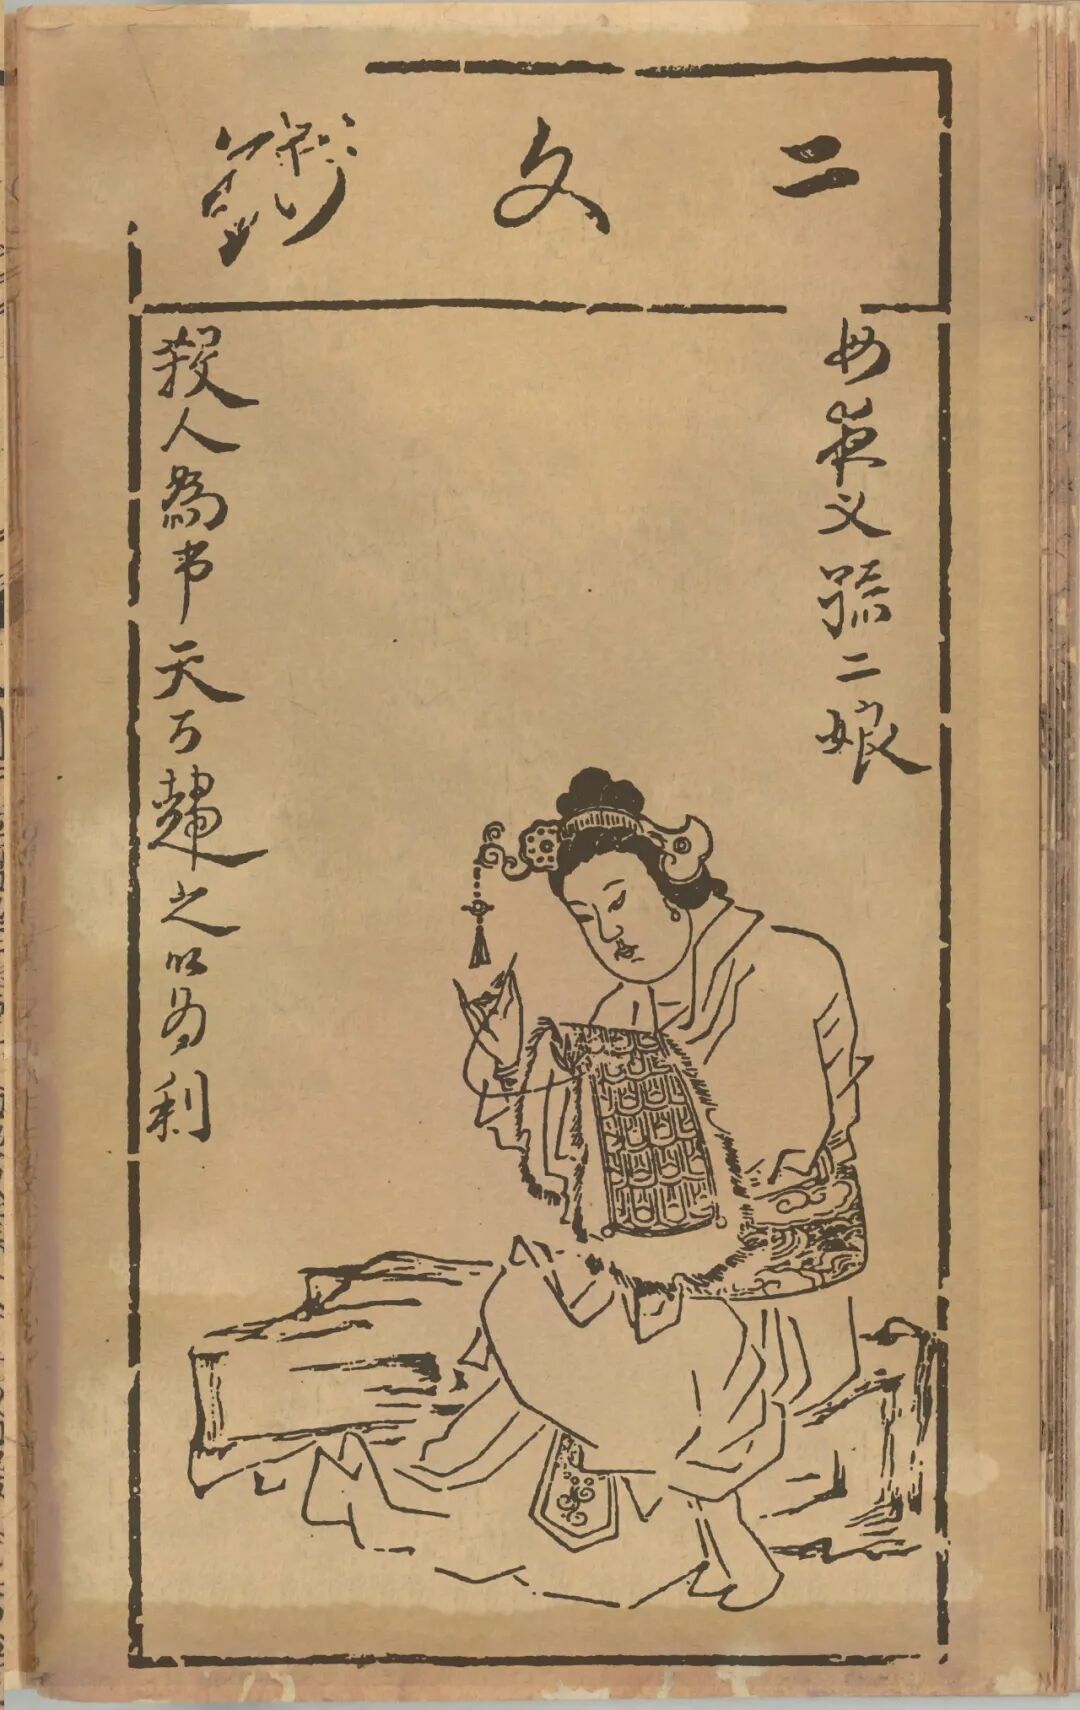 二文錢
母夜叉孫二娘
殺人為市天下趨之以為利